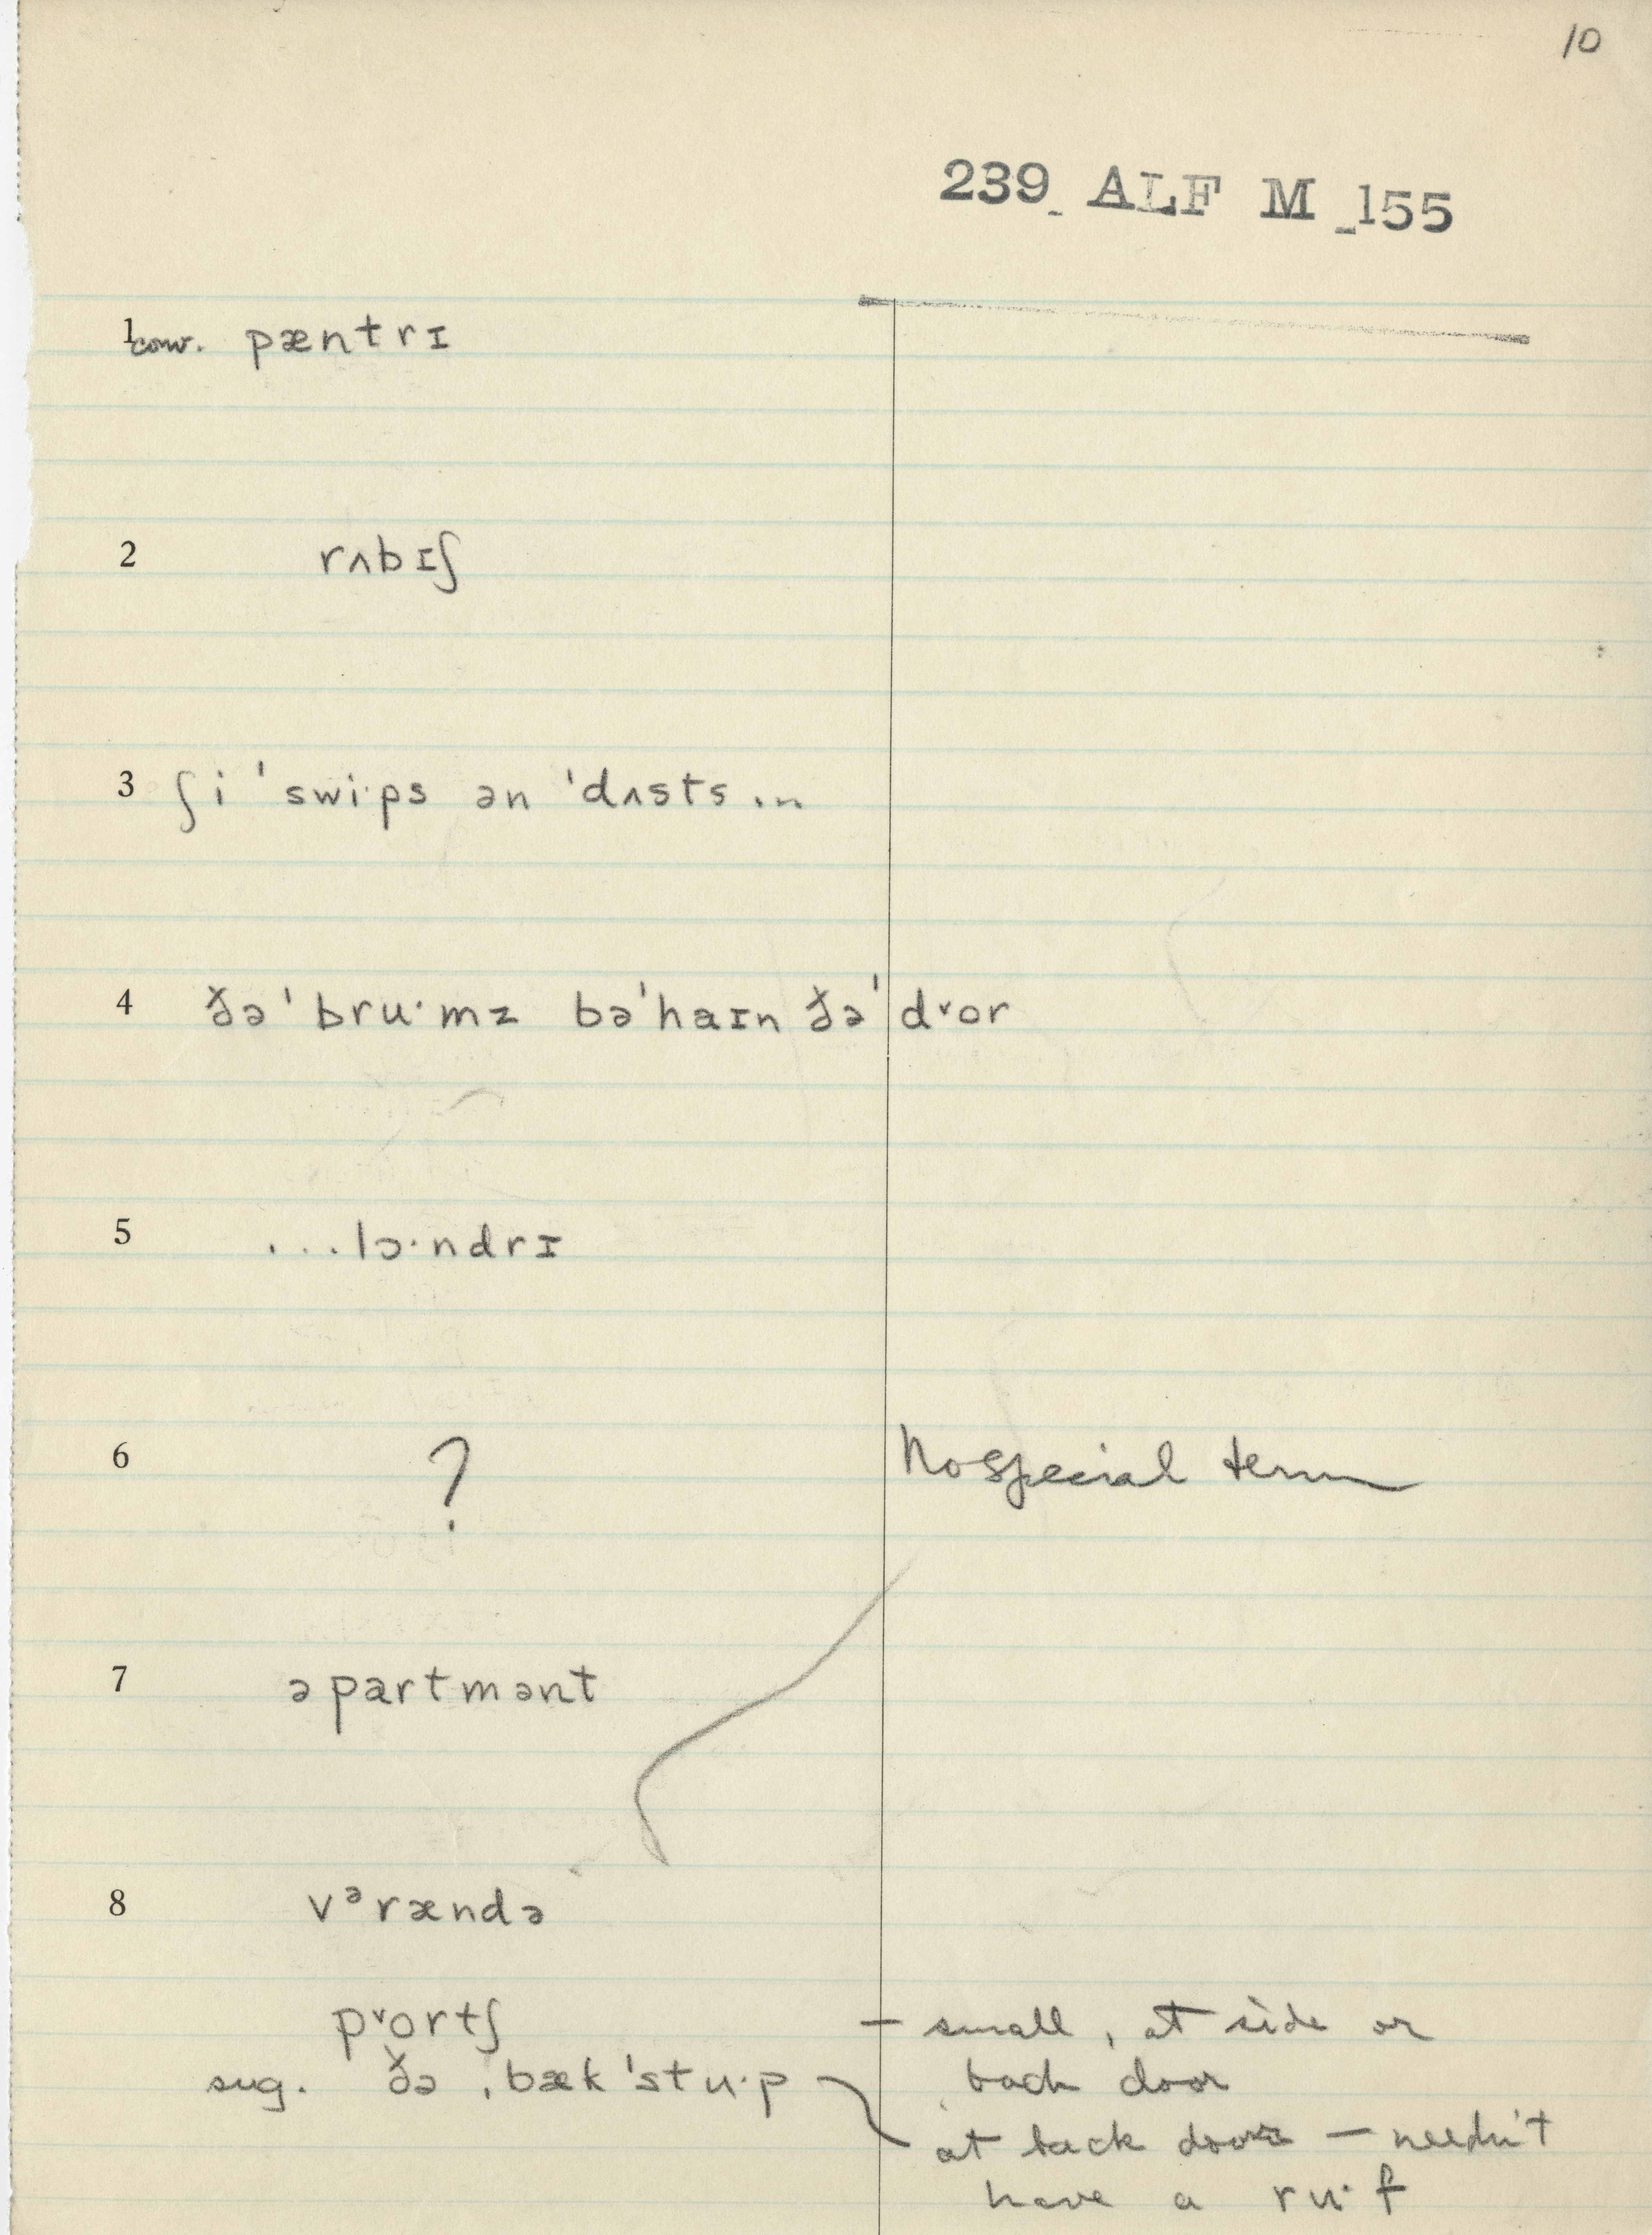 10
239 ALF M 155
1 conv. pæntrɪ
2 rʌbɪʃ
3 ʃi ˈswi·ps ən ˈdʌsts ...
4 ðəˈbru·mz bəˈhaɪn ðəˈdˠor
5 ...lɔ·ndrɪ
6 ? No special term
7 əpartmənt
8 vᵊrændə
pˠortʃ – small, at side or
sug. ðə ˌbækˈstu·p back door
at back door – needn't
have a ru·f